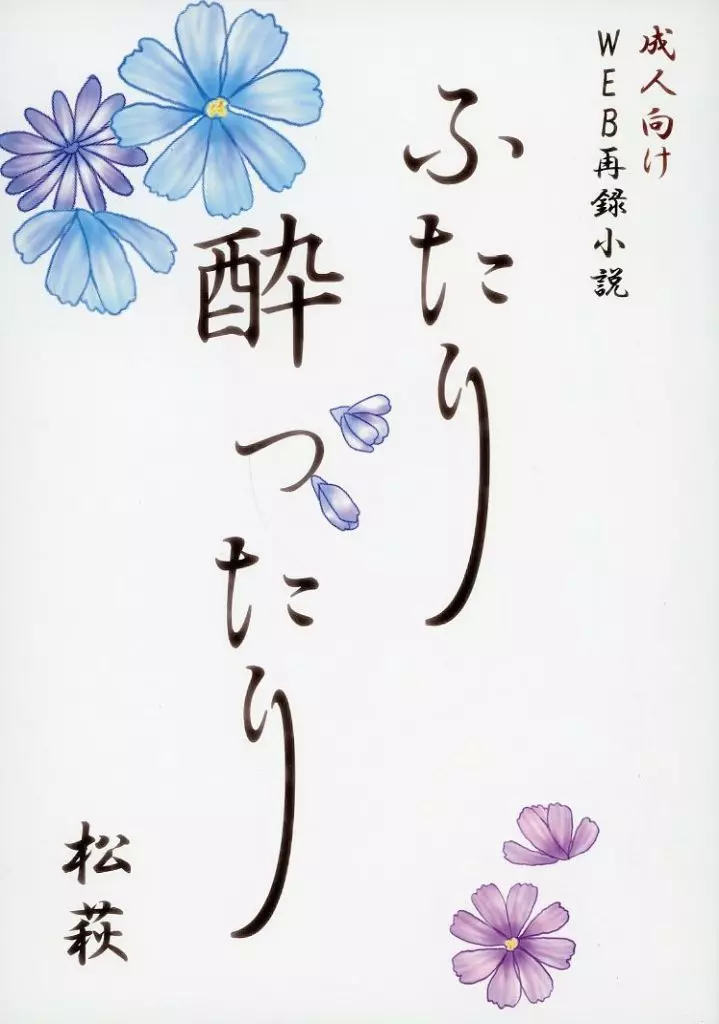 成人向け
WEB再録小説
ふたり
酔ったり
松萩